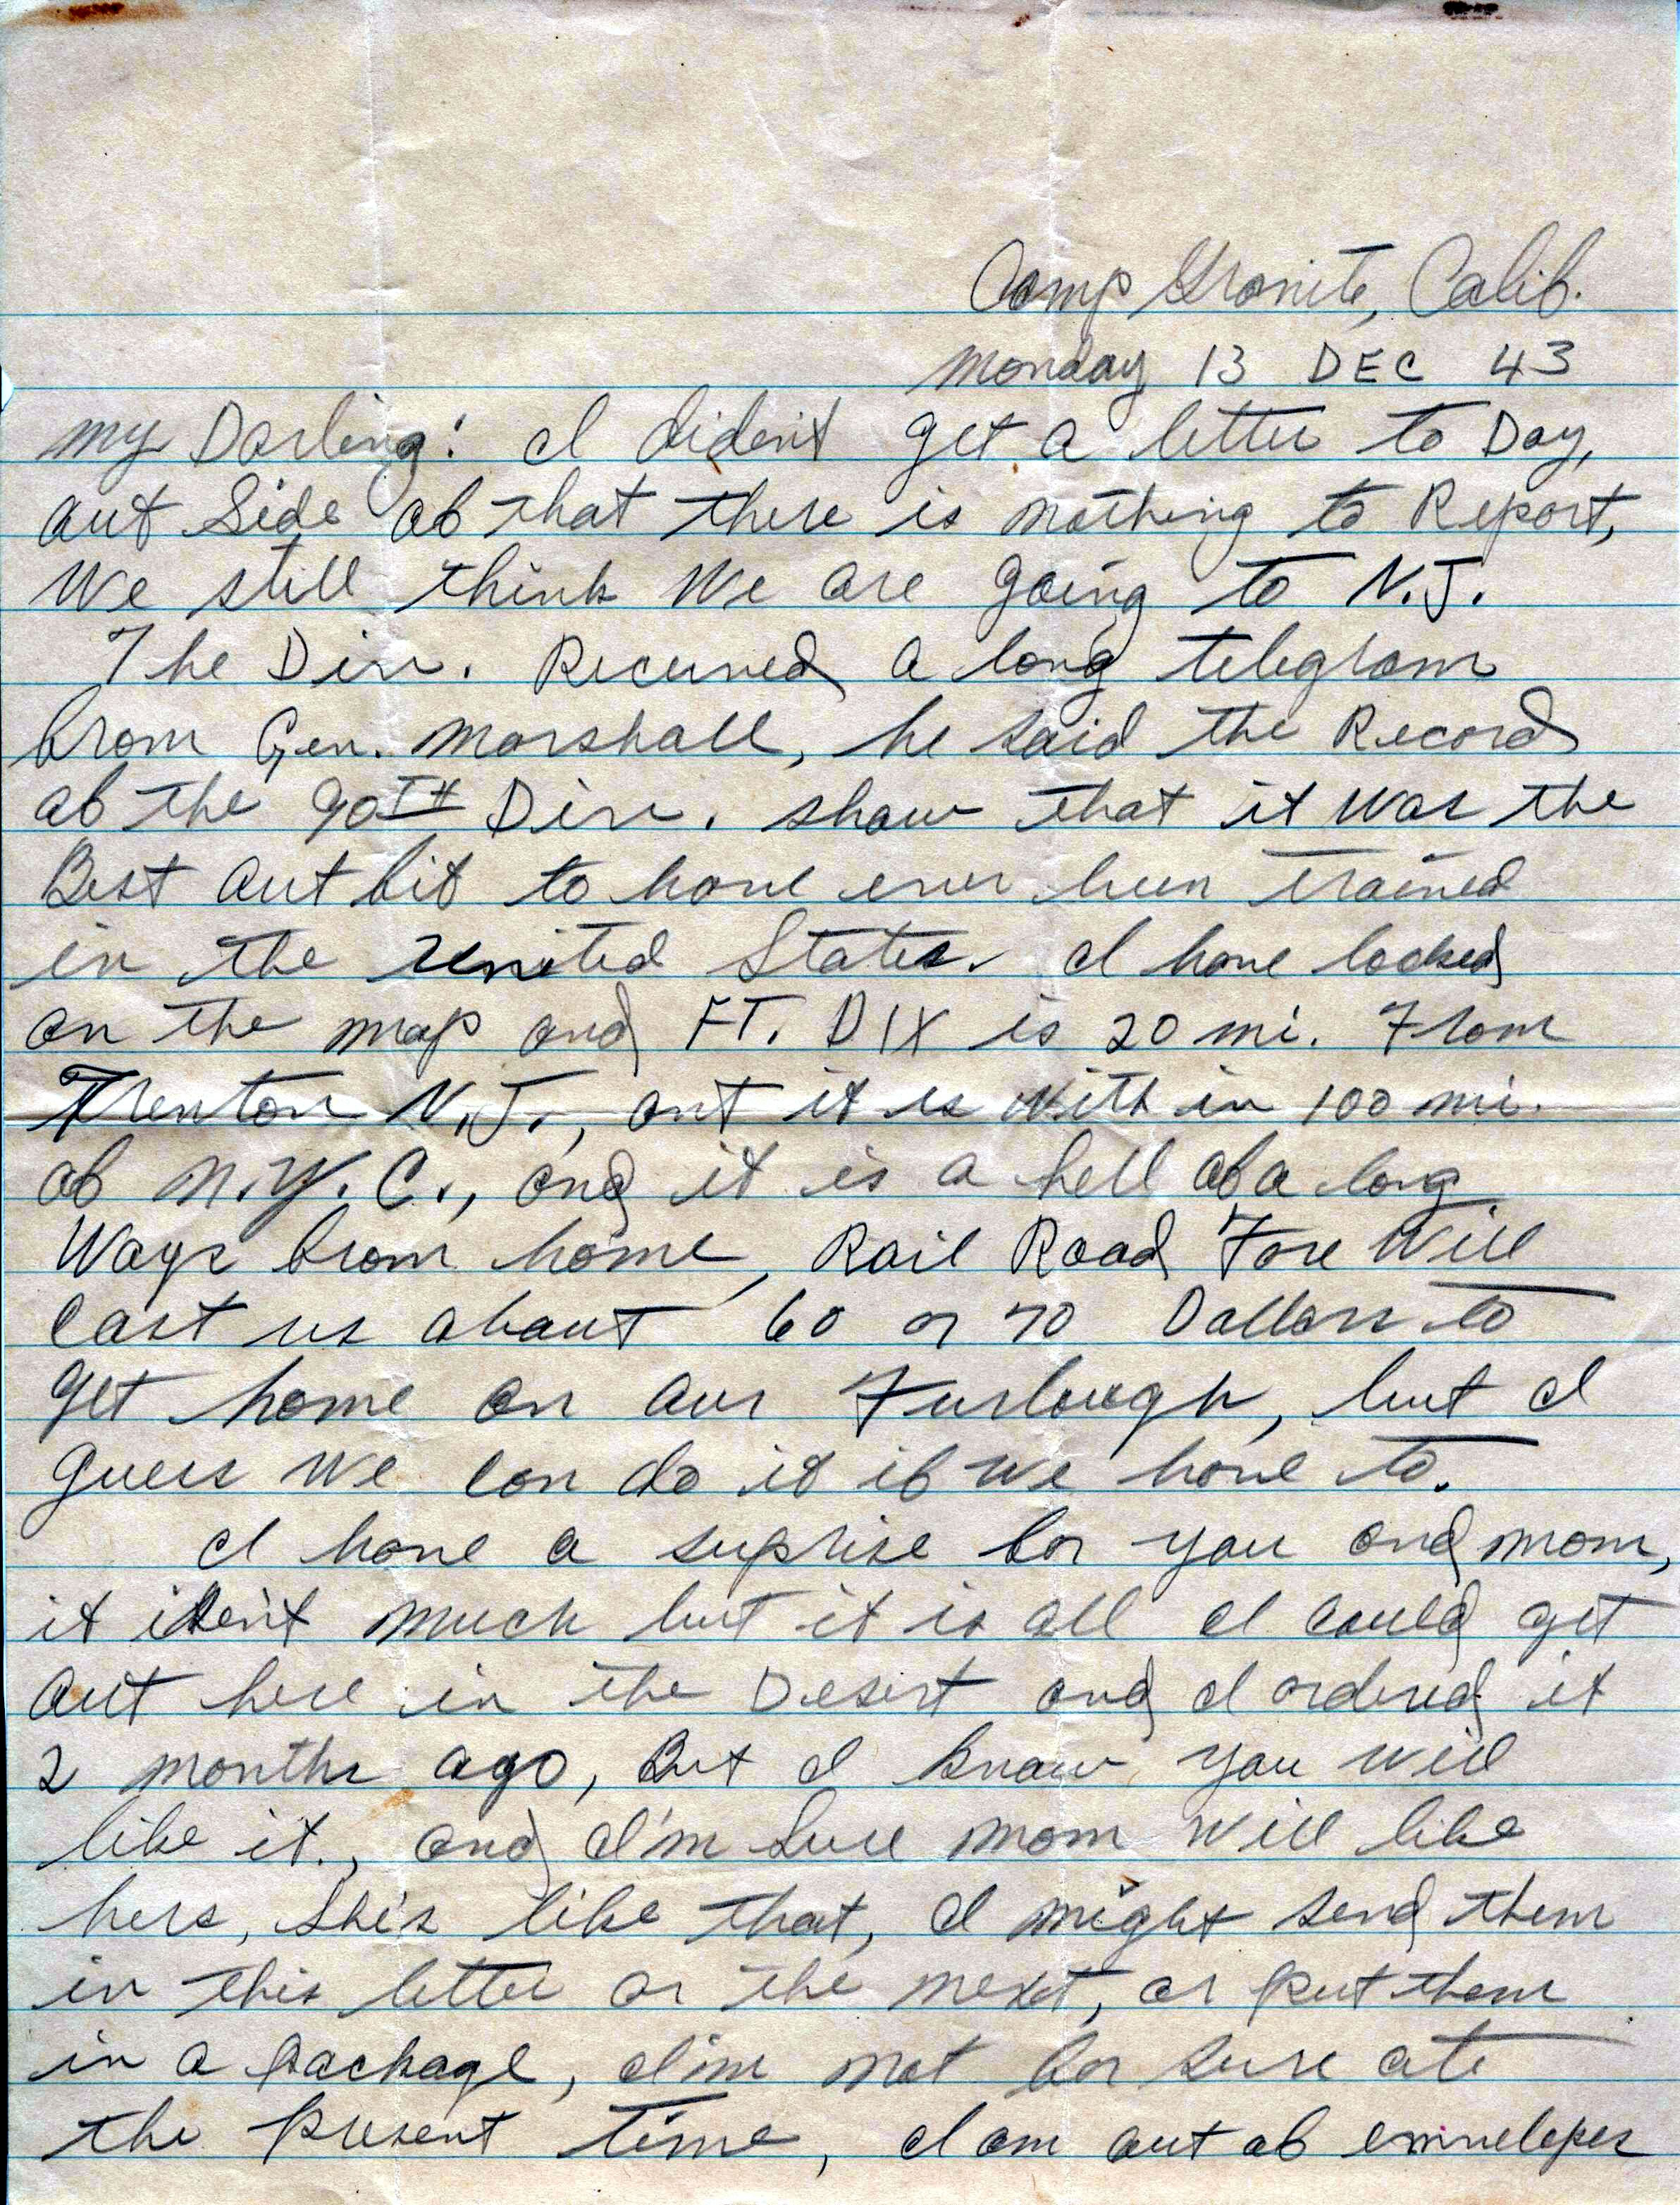 Camp Granite, Calif.
Monday 13 DEC 43
My Darling: I dident get a letter to Day,
out Side of that there is nothing to Report,
We still think We are going to N.J.
The Div. Received a long telegram
from Gen. Marshall, he said the Record
of the 90TH Div. show that it was the
Best out fit to have ever been trained
in the United States. I have looked
on the map and FT. DIX is 20 mi. From
Trenton N.J., ant it is With in 100 mi.
of N.Y.C., and it is a hell of a long
Ways from home, Rail Road Fare Will
Cost us about 60 or 70 Dollars to
get home on our Furlough, but I
guess we can do it if we have to.
I have a suprise for you and mom,
it ident much but it is all I could get
out here in the Desert and I ordered it
2 months ago, But I know you will
like it., and I'm Sure mom will like
hers, She's like that, I might send them
in this letter or the next, or put them
in a package, I'm not for sure at
the present time, I am out of envelopes